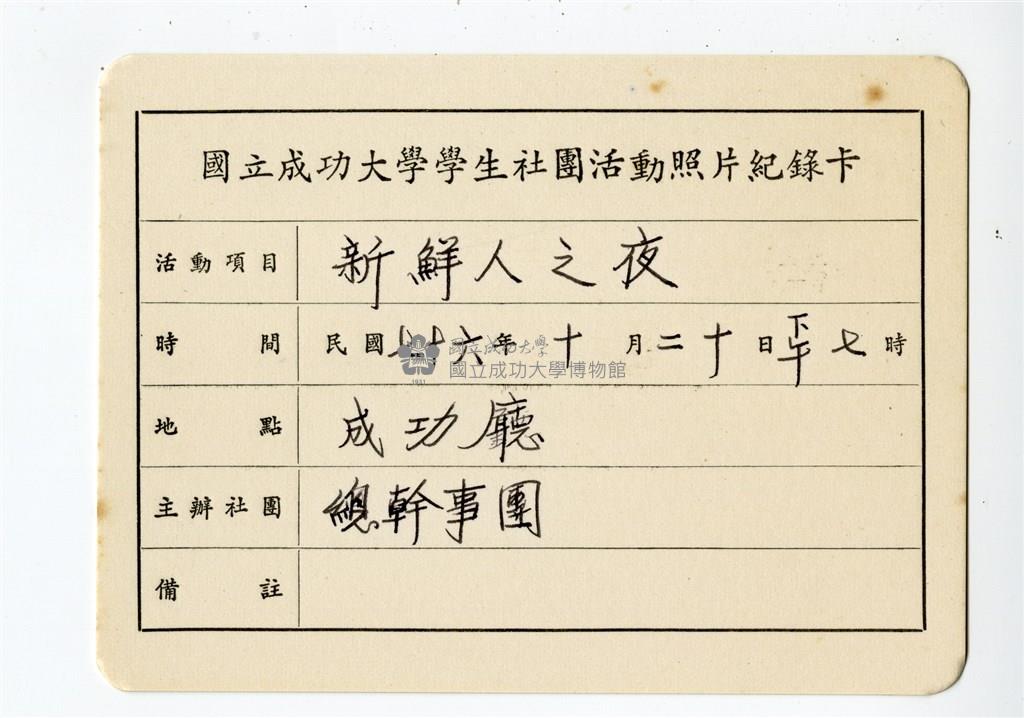 國立成功大學學生社團活動照片紀錄卡
活動項目 新鮮人之夜
時間 民國七十六年十月二十日下午七時
國立成功大學
國立成功大學博物館
1931
地點 成功廳
主辦社團 總幹事團
備註